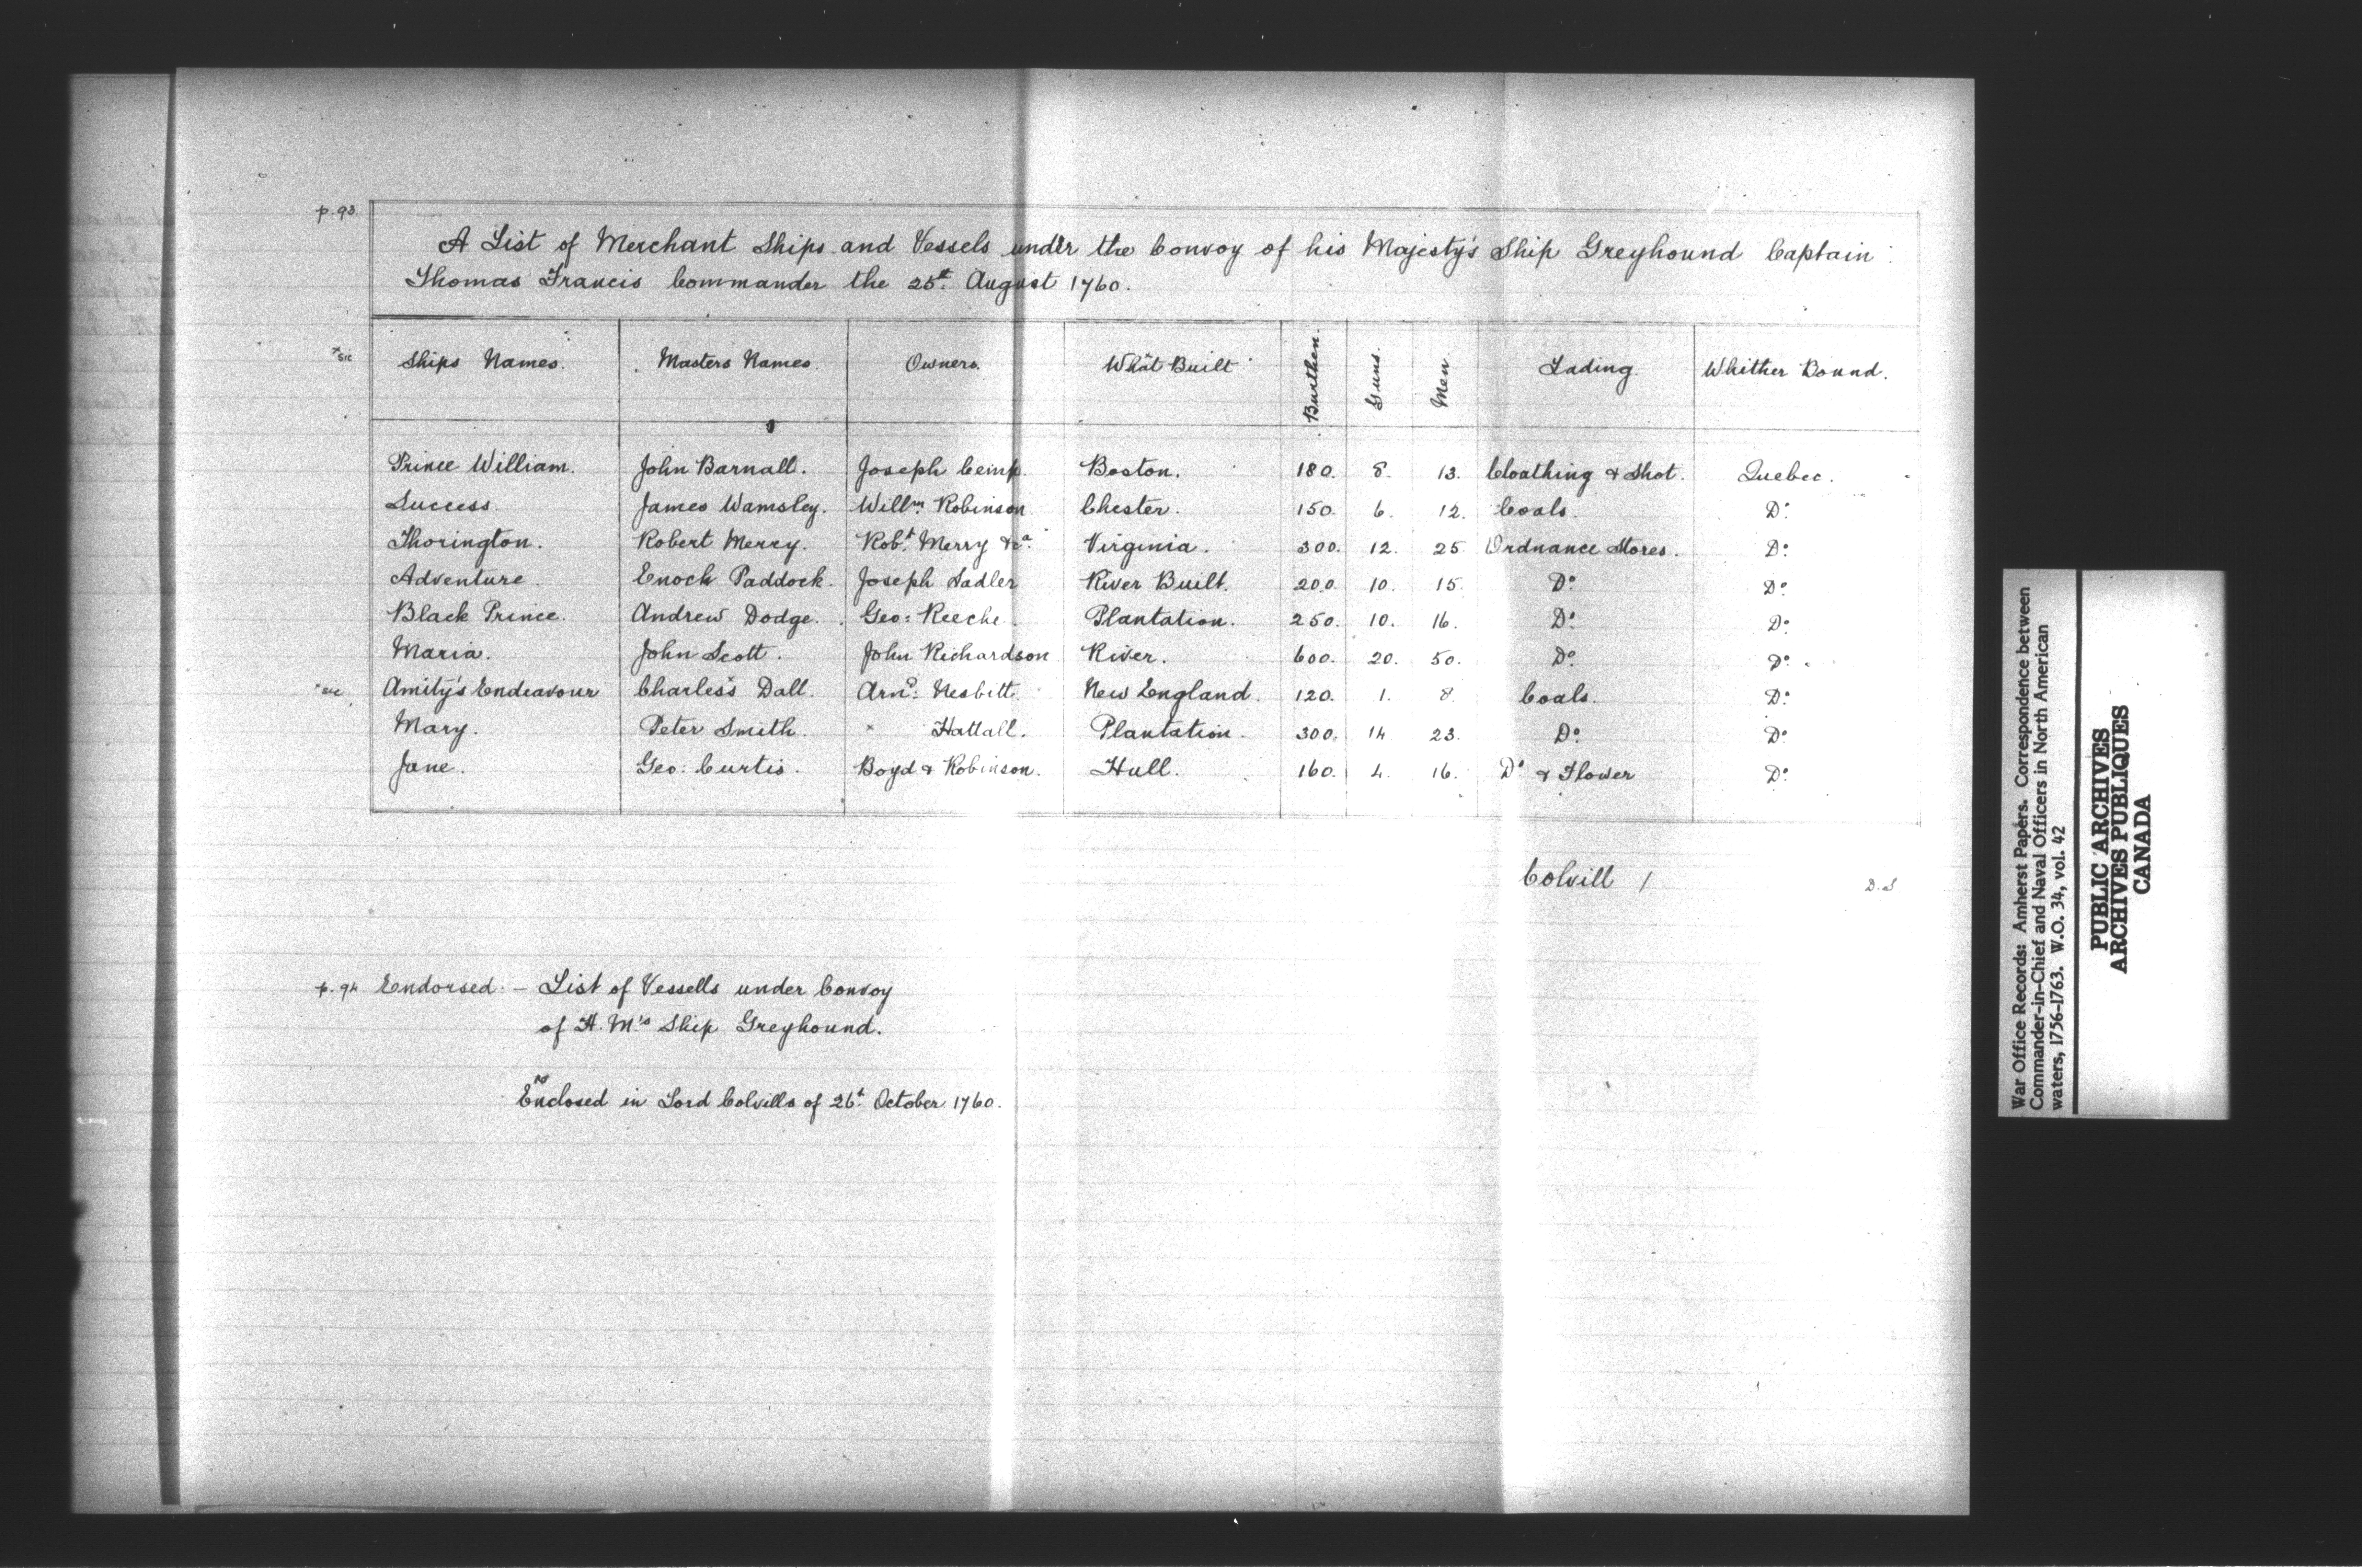 p. 93
A List of Merchant Ships and Vessels under the Convoy of his Majesty's Ship Greyhound Captain
Thomas Francis Commander the 25t. August 1760.
*sic
Ships Names. Masters Names. Owners. What* Built Burthen. Guns. Men Lading. Whither Bound.
Prince William. John Barnall. Joseph Boston. 180. 8. 13. Cloathing & Shot. Quebec.
Success. James Wamsley. Willm. Robinson Chester. 150. 6. 12. Coals. Do.
Thorington. Robert Merry. Robt. Merry &ca. Virginia. 300. 12. 25. Ordnance Stores. Do.
Adventure. Enoch Paddock. Joseph Sadler River Built. 200. 10. 15. Do. Do.
Black Prince. Andrew Dodge. Geo: Reeche. Plantation. 250. 10. 16. Do. Do.
Maria. John Scott. John Richardson River. 600. 20. 50. Do. Do.
*sic Amity's Endeavour Charles*s Dall. Arnd: Nesbitt. New England. 120. 1. 8. Coals. Do.
Mary. Peter Smith. Hattall. Plantation. 300. 14 23. Do. Do.
Jane. Geo: Curtis. Boyd & Robinson. Hull. 160. 4. 16. Do & Flower Do.
Colvill / D.S
p. 94 Endorsed: - List of Vessells under Convoy
of H. M's Ship Greyhound.
Enclosed in Lord Colvills of 26t. October 1760.
War Office Records: Amherst Papers. Correspondence between
Commander-in-Chief and Naval Officers in North American
waters, 1756-1763. W.O. 34, vol. 42
PUBLIC ARCHIVES
ARCHIVES PUBLIQUES
CANADA